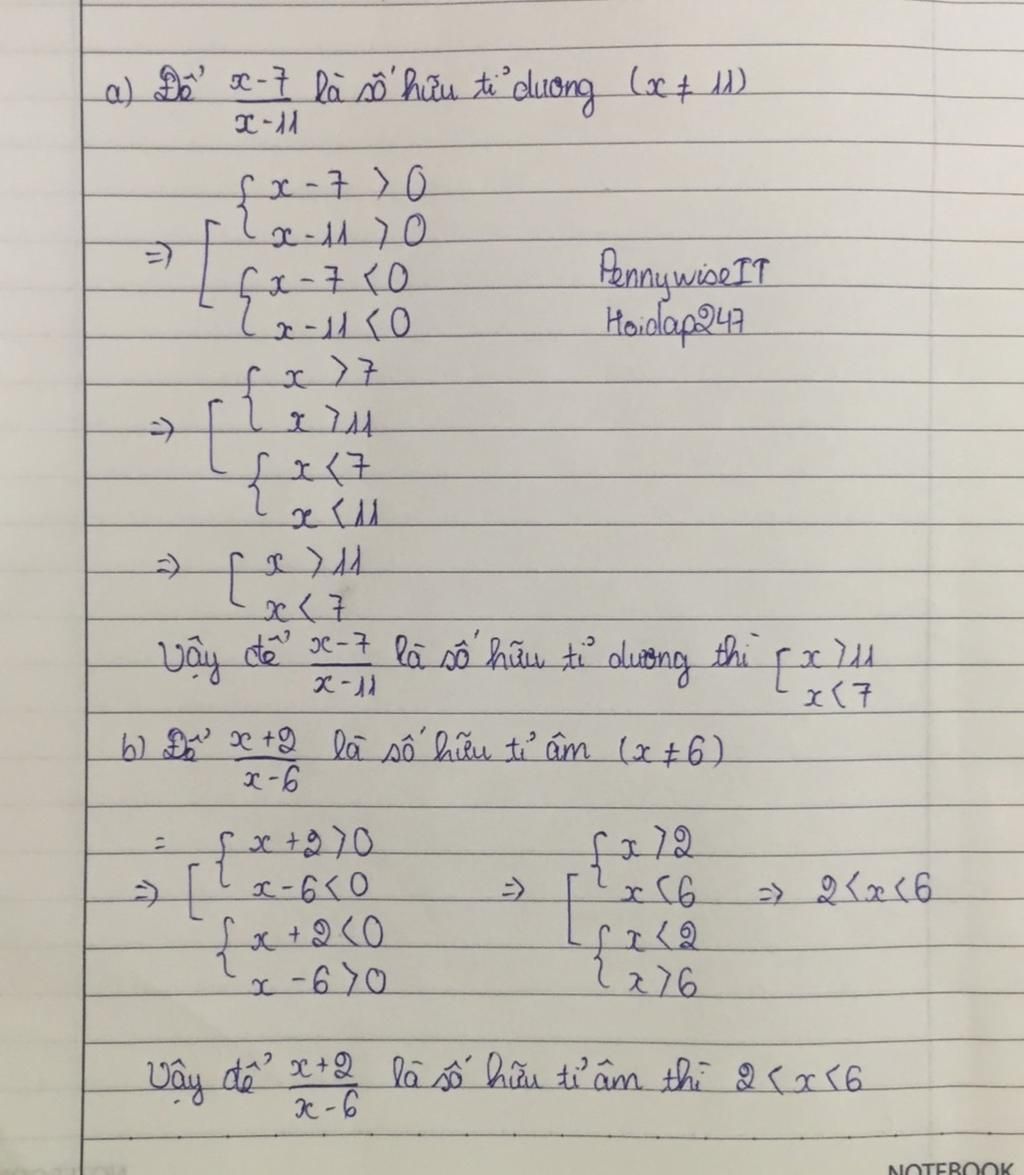 a) Để x-7/x-11 là số hữu tỉ dương (x ≠ 11)
⇒ [ { x - 7 > 0
{ x - 11 > 0
{ x - 7 < 0
{ x - 11 < 0
PennywiseIT
Hoidap247
⇒ [ { x > 7
{ x > 11
{ x < 7
{ x < 11
⇒ [ x > 11
x < 7
Vậy để x-7/x-11 là số hữu tỉ dương thì [ x > 11
x < 7
b) Để x+2/x-6 là số hữu tỉ âm (x ≠ 6)
= { x + 2 > 0 { x > 2
⇒ [ x - 6 < 0 ⇒ [ x < 6 ⇒ 2 < x < 6
{ x + 2 < 0 { x < 2
x - 6 > 0 x > 6
Vậy để x+2/x-6 là số hữu tỉ âm thì 2 < x < 6
NOTEBOOK